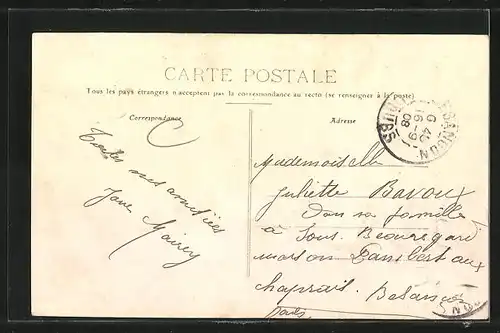 CARTE POSTALE
Tous les pays étrangers n'acceptent pas la correspondance au recto (se renseigner à la poste)
Correspondance
Adresse
C
BESANÇON
16-9
08
DOUBS
Toutes mes amitiées
Jane Mairey
Mademoiselle
Juliette Bavoux
Dans sa famille
à Sous Beauregard
maison Lambert aux
chaprais. Besançon